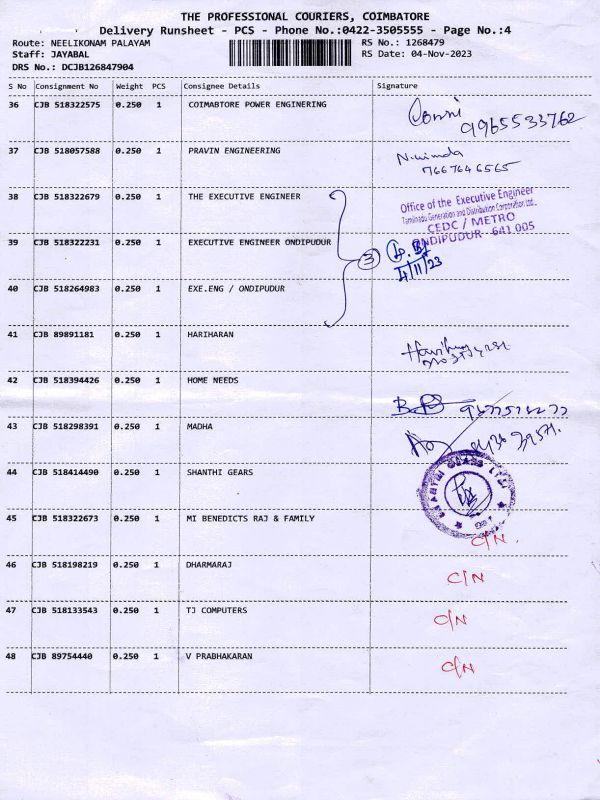 THE PROFESSIONAL COURIERS, COIMBATORE
Delivery Runsheet - PCS - Phone No.:0422-3505555 - Page No.:4
Route: NEELIKONAM PALAYAM RS No.: 1268479
Staff: JAYABAL RS Date: 04-Nov-2023
DRS No.: DCJB126847904
S No Consignment No Weight PCS Consignee Details Signature
36 CJB 518322575 0.250 1 COIMABTORE POWER ENGINERING
9965533762
37 CJB 518057588 0.250 1 PRAVIN ENGINEERING
7667646565
38 CJB 518322679 0.250 1 THE EXECUTIVE ENGINEER
Office of the Executive Engineer
Tamilnadu Generation and Distribution Corporation Ltd.,
CEDC / METRO
ONDIPUDUR - 641 005
39 CJB 518322231 0.250 1 EXECUTIVE ENGINEER ONDIPUDUR
3
4/11/23
40 CJB 518264983 0.250 1 EXE.ENG / ONDIPUDUR
41 CJB 89891181 0.250 1 HARIHARAN
42 CJB 518394426 0.250 1 HOME NEEDS
43 CJB 518298391 0.250 1 MADHA
44 CJB 518414490 0.250 1 SHANTHI GEARS
SHANTHI GEARS LTD
45 CJB 518322673 0.250 1 MI BENEDICTS RAJ & FAMILY
C/N.
46 CJB 518198219 0.250 1 DHARMARAJ
C/N
47 CJB 518133543 0.250 1 TJ COMPUTERS
C/N
48 CJB 89754440 0.250 1 V PRABHAKARAN
C/N